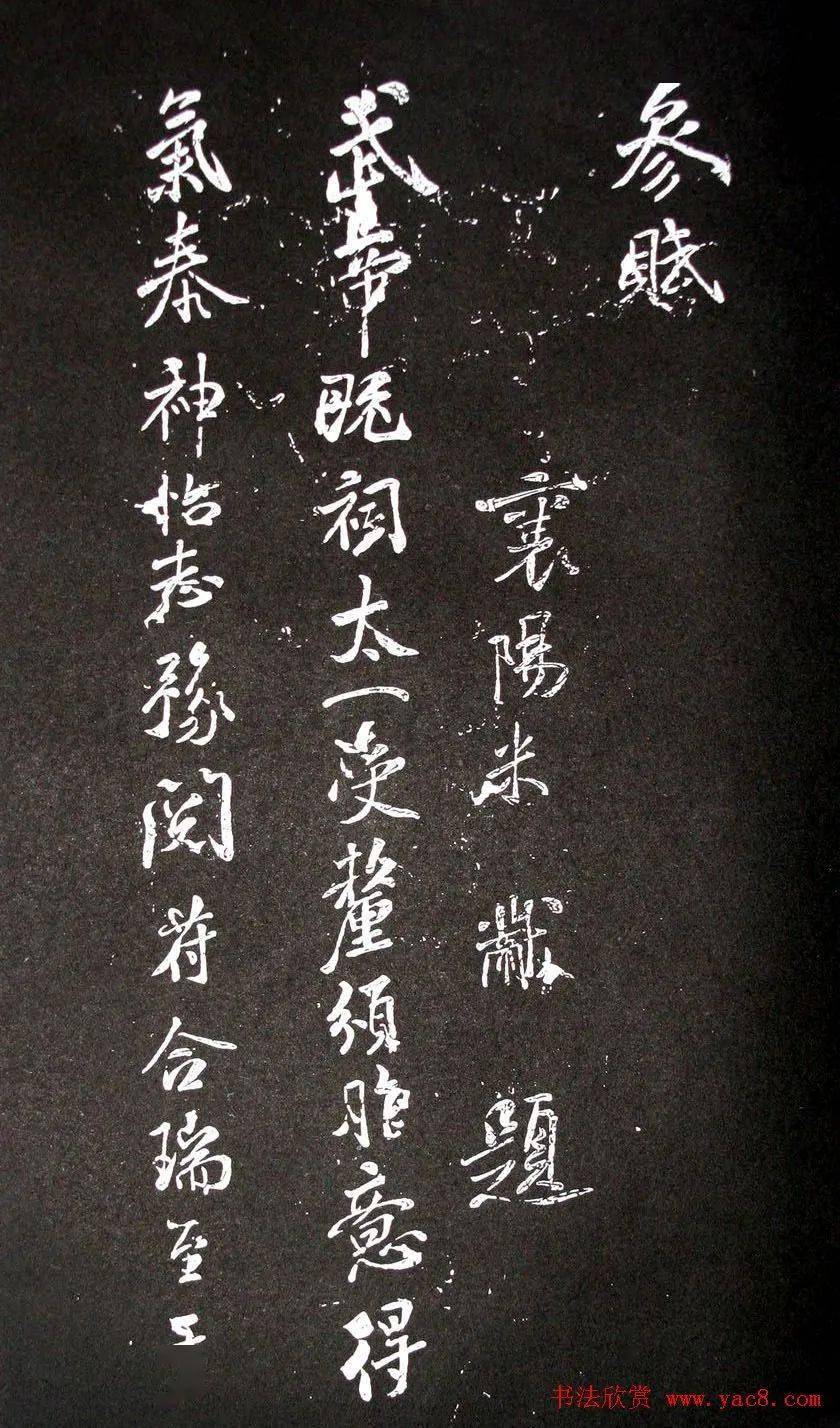 參賦
襄陽米黻題
武帝既祠太一受釐頒胙意得
氣泰神怡志豫閱符合瑞至
书法欣赏 www.yac8.com